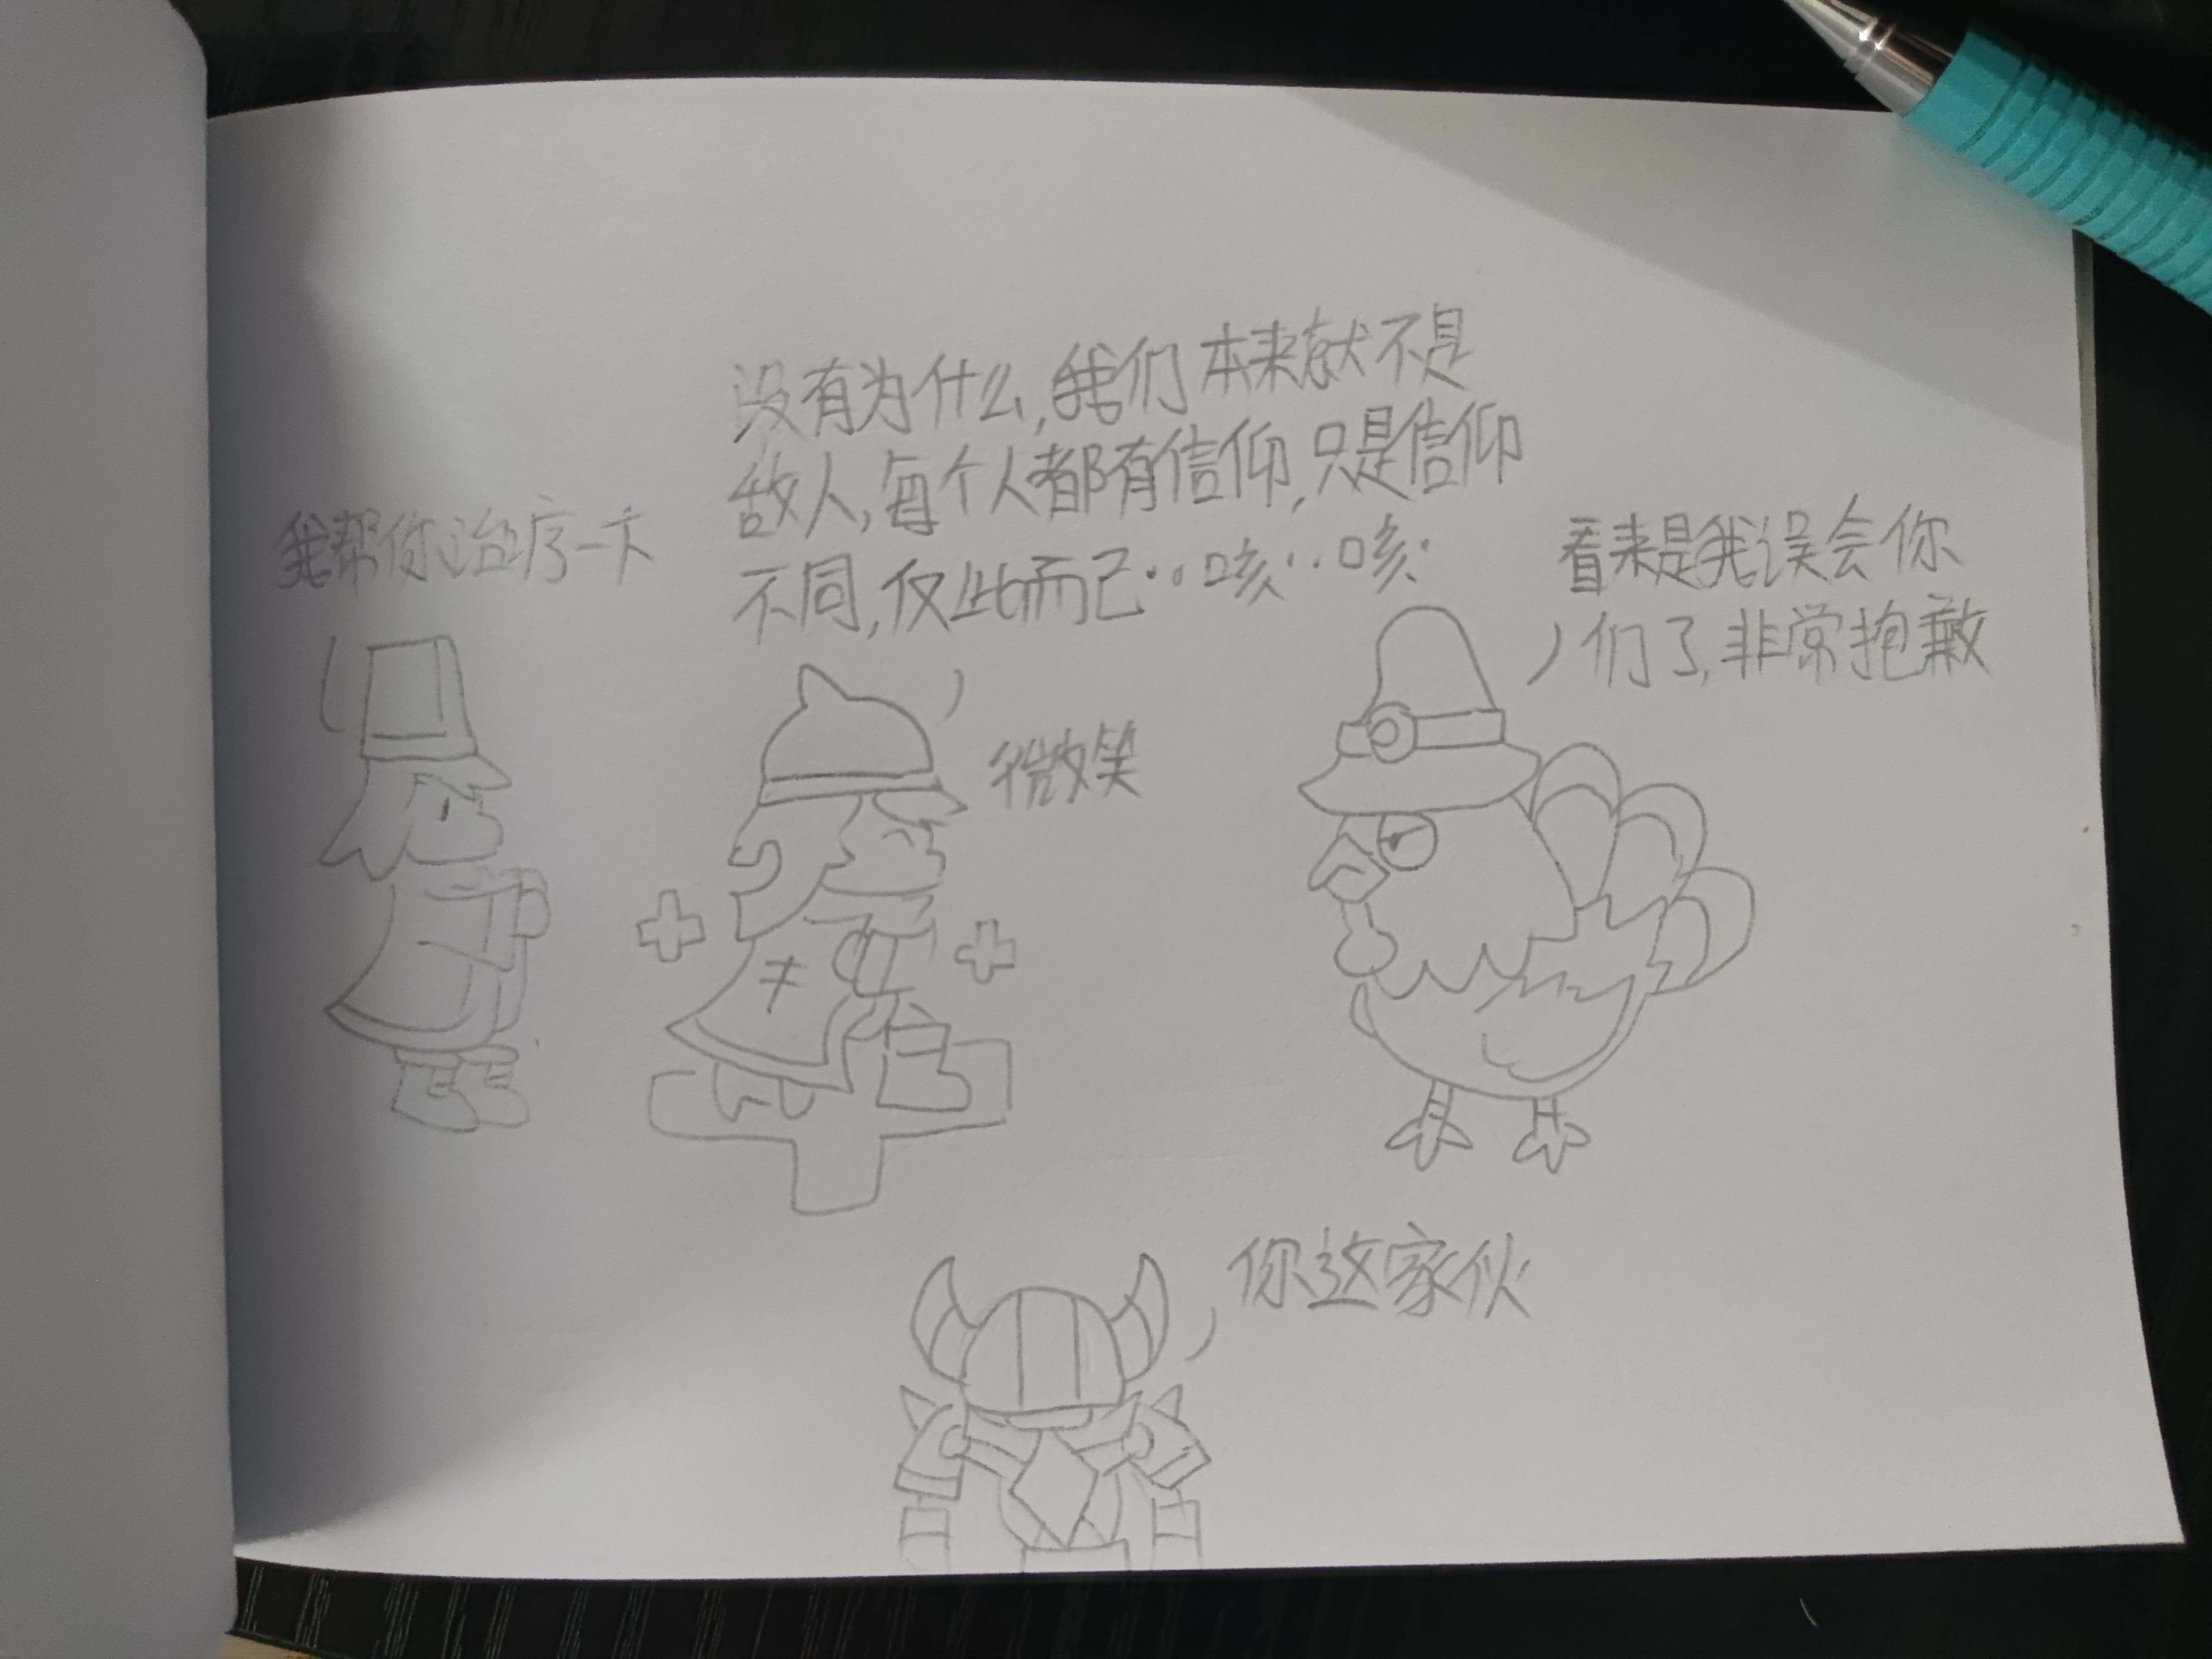 没有为什么,我们本来就不是
敌人,每个人都有信仰,只是信仰
不同,仅此而己··咳··咳··
我帮你治疗一下
看来是我误会你
们了,非常抱歉
微笑
你这家伙